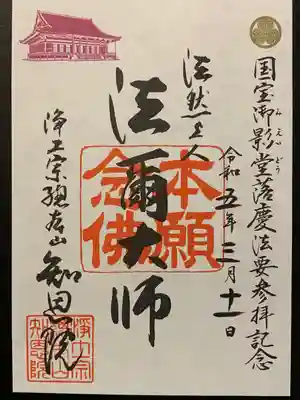 国宝御影堂落慶法要参拝記念
みえいどう
令和五年三月十一日
法然上人
法爾大師
本願
念佛
浄土宗總本山知恩院
浄土宗
總本山
知恩院